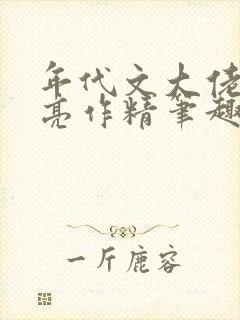 年代文大佬
亮作精笔趣
一斤鹿容